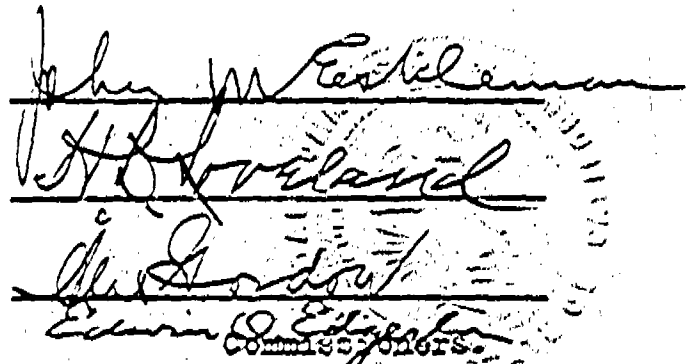 John M Eshleman
H D Loveland
Alex Gordon
Edwin O Edgerton
Commissioners.